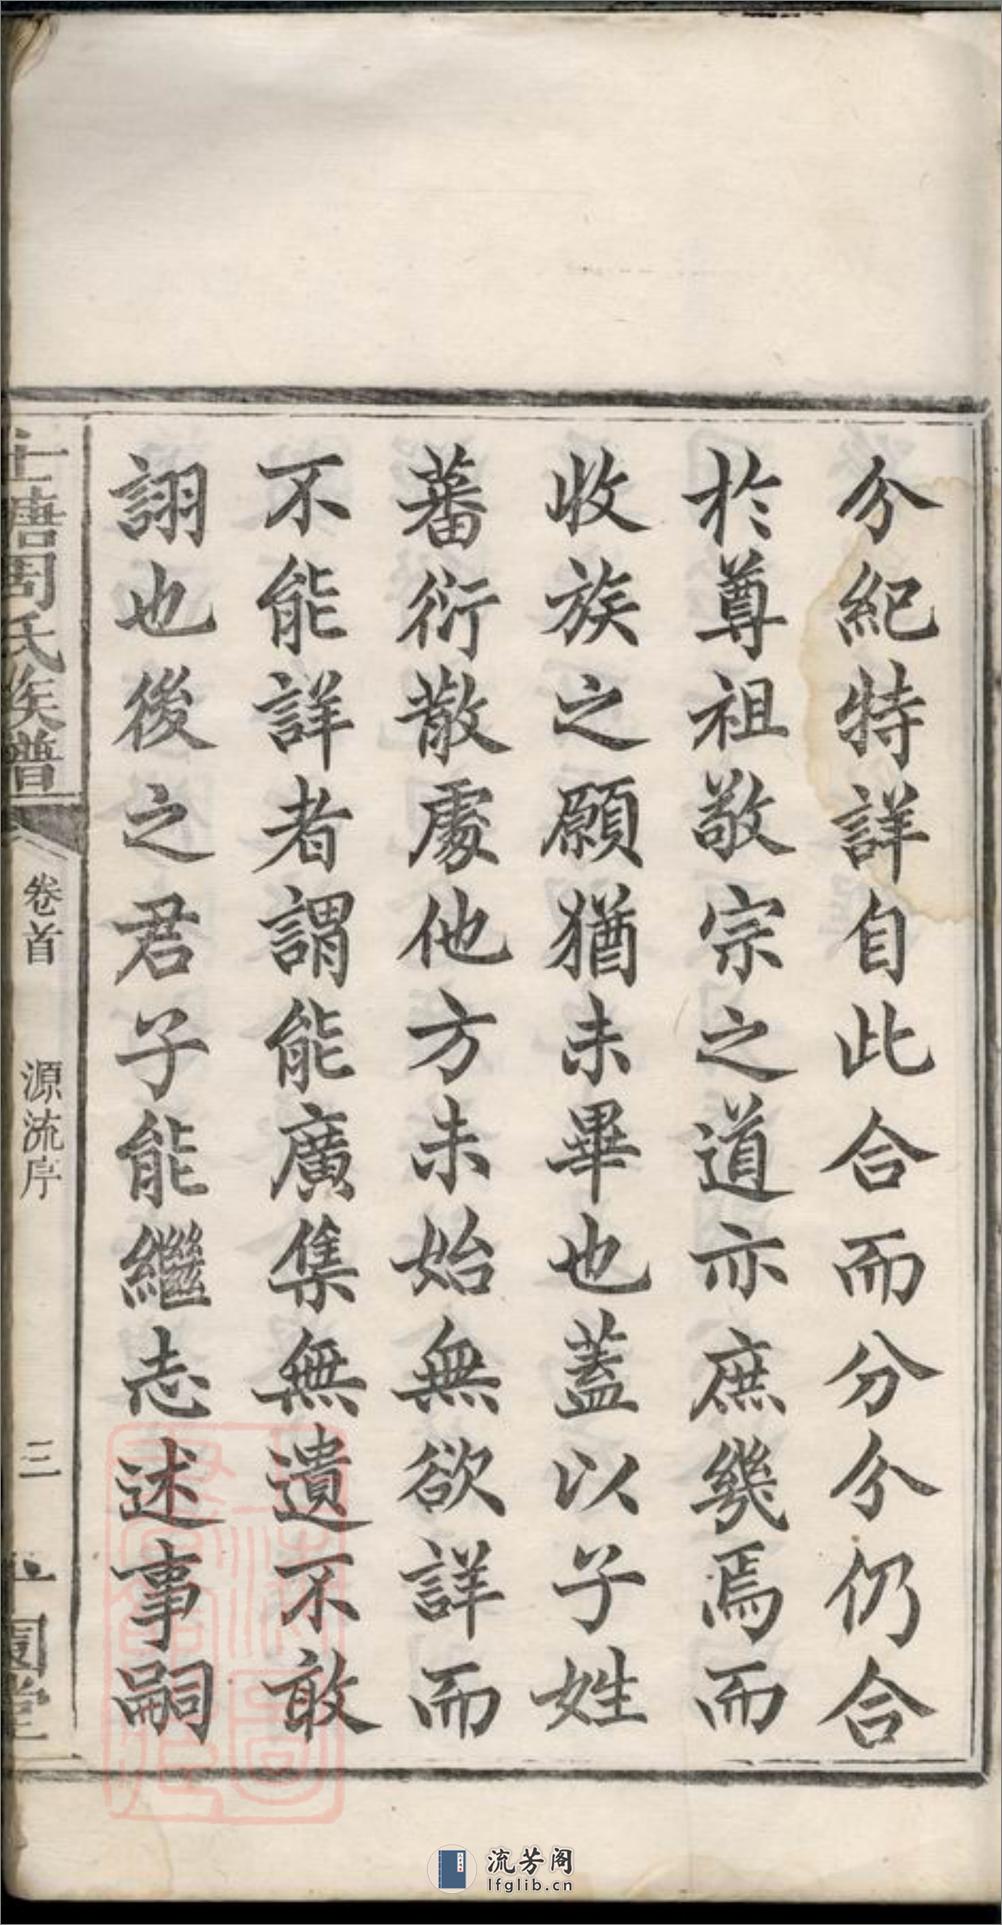 分紀特詳自此合而分分仍合
於尊祖敬宗之道亦庶幾焉而
收族之願猶未畢也蓋以子姓
蕃衍散處他方未始無欲詳而
不能詳者謂能廣集無遺不敢
詡也後之君子能繼志述事嗣
塘周氏族譜
卷首
源流序
三
堂
流芳阁
lfglib.cn